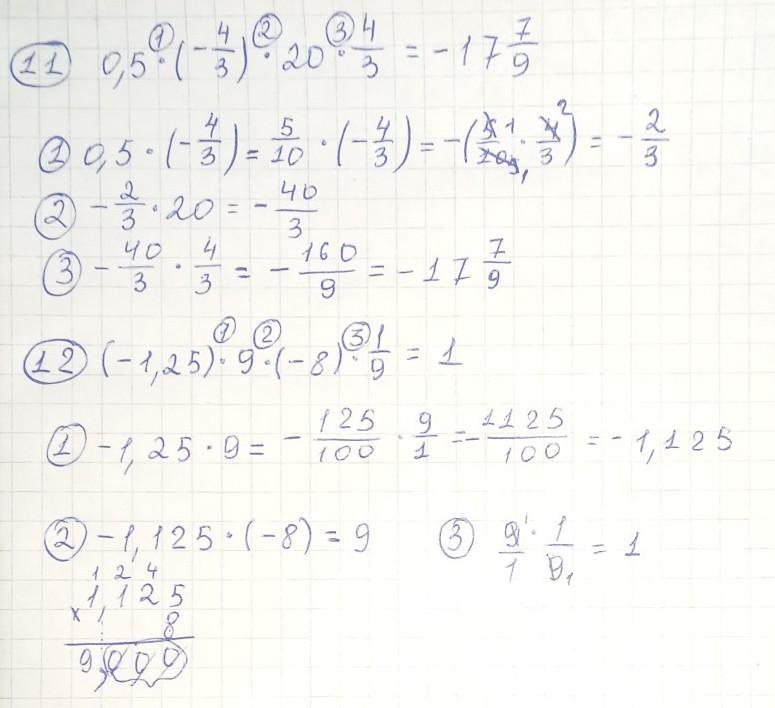 11 0,5 · (-4/3) · 20 · 4/3 = -17 7/9
1 0,5 · (-4/3) = 5/10 · (-4/3) = -(5 1/10 · 4 2/3) = -2/3
2 -2/3 · 20 = -40/3
3 -40/3 · 4/3 = -160/9 = -17 7/9
12 (-1,25) · 9 · (-8) · 1/9 = 1
1 -1,25 · 9 = -125/100 · 9/1 = -1125/100 = -1,125
2 -1,125 · (-8) = 9
3 9 1/1 · 1/9 1 = 1
1 2 4
1,125
× 8
9,000